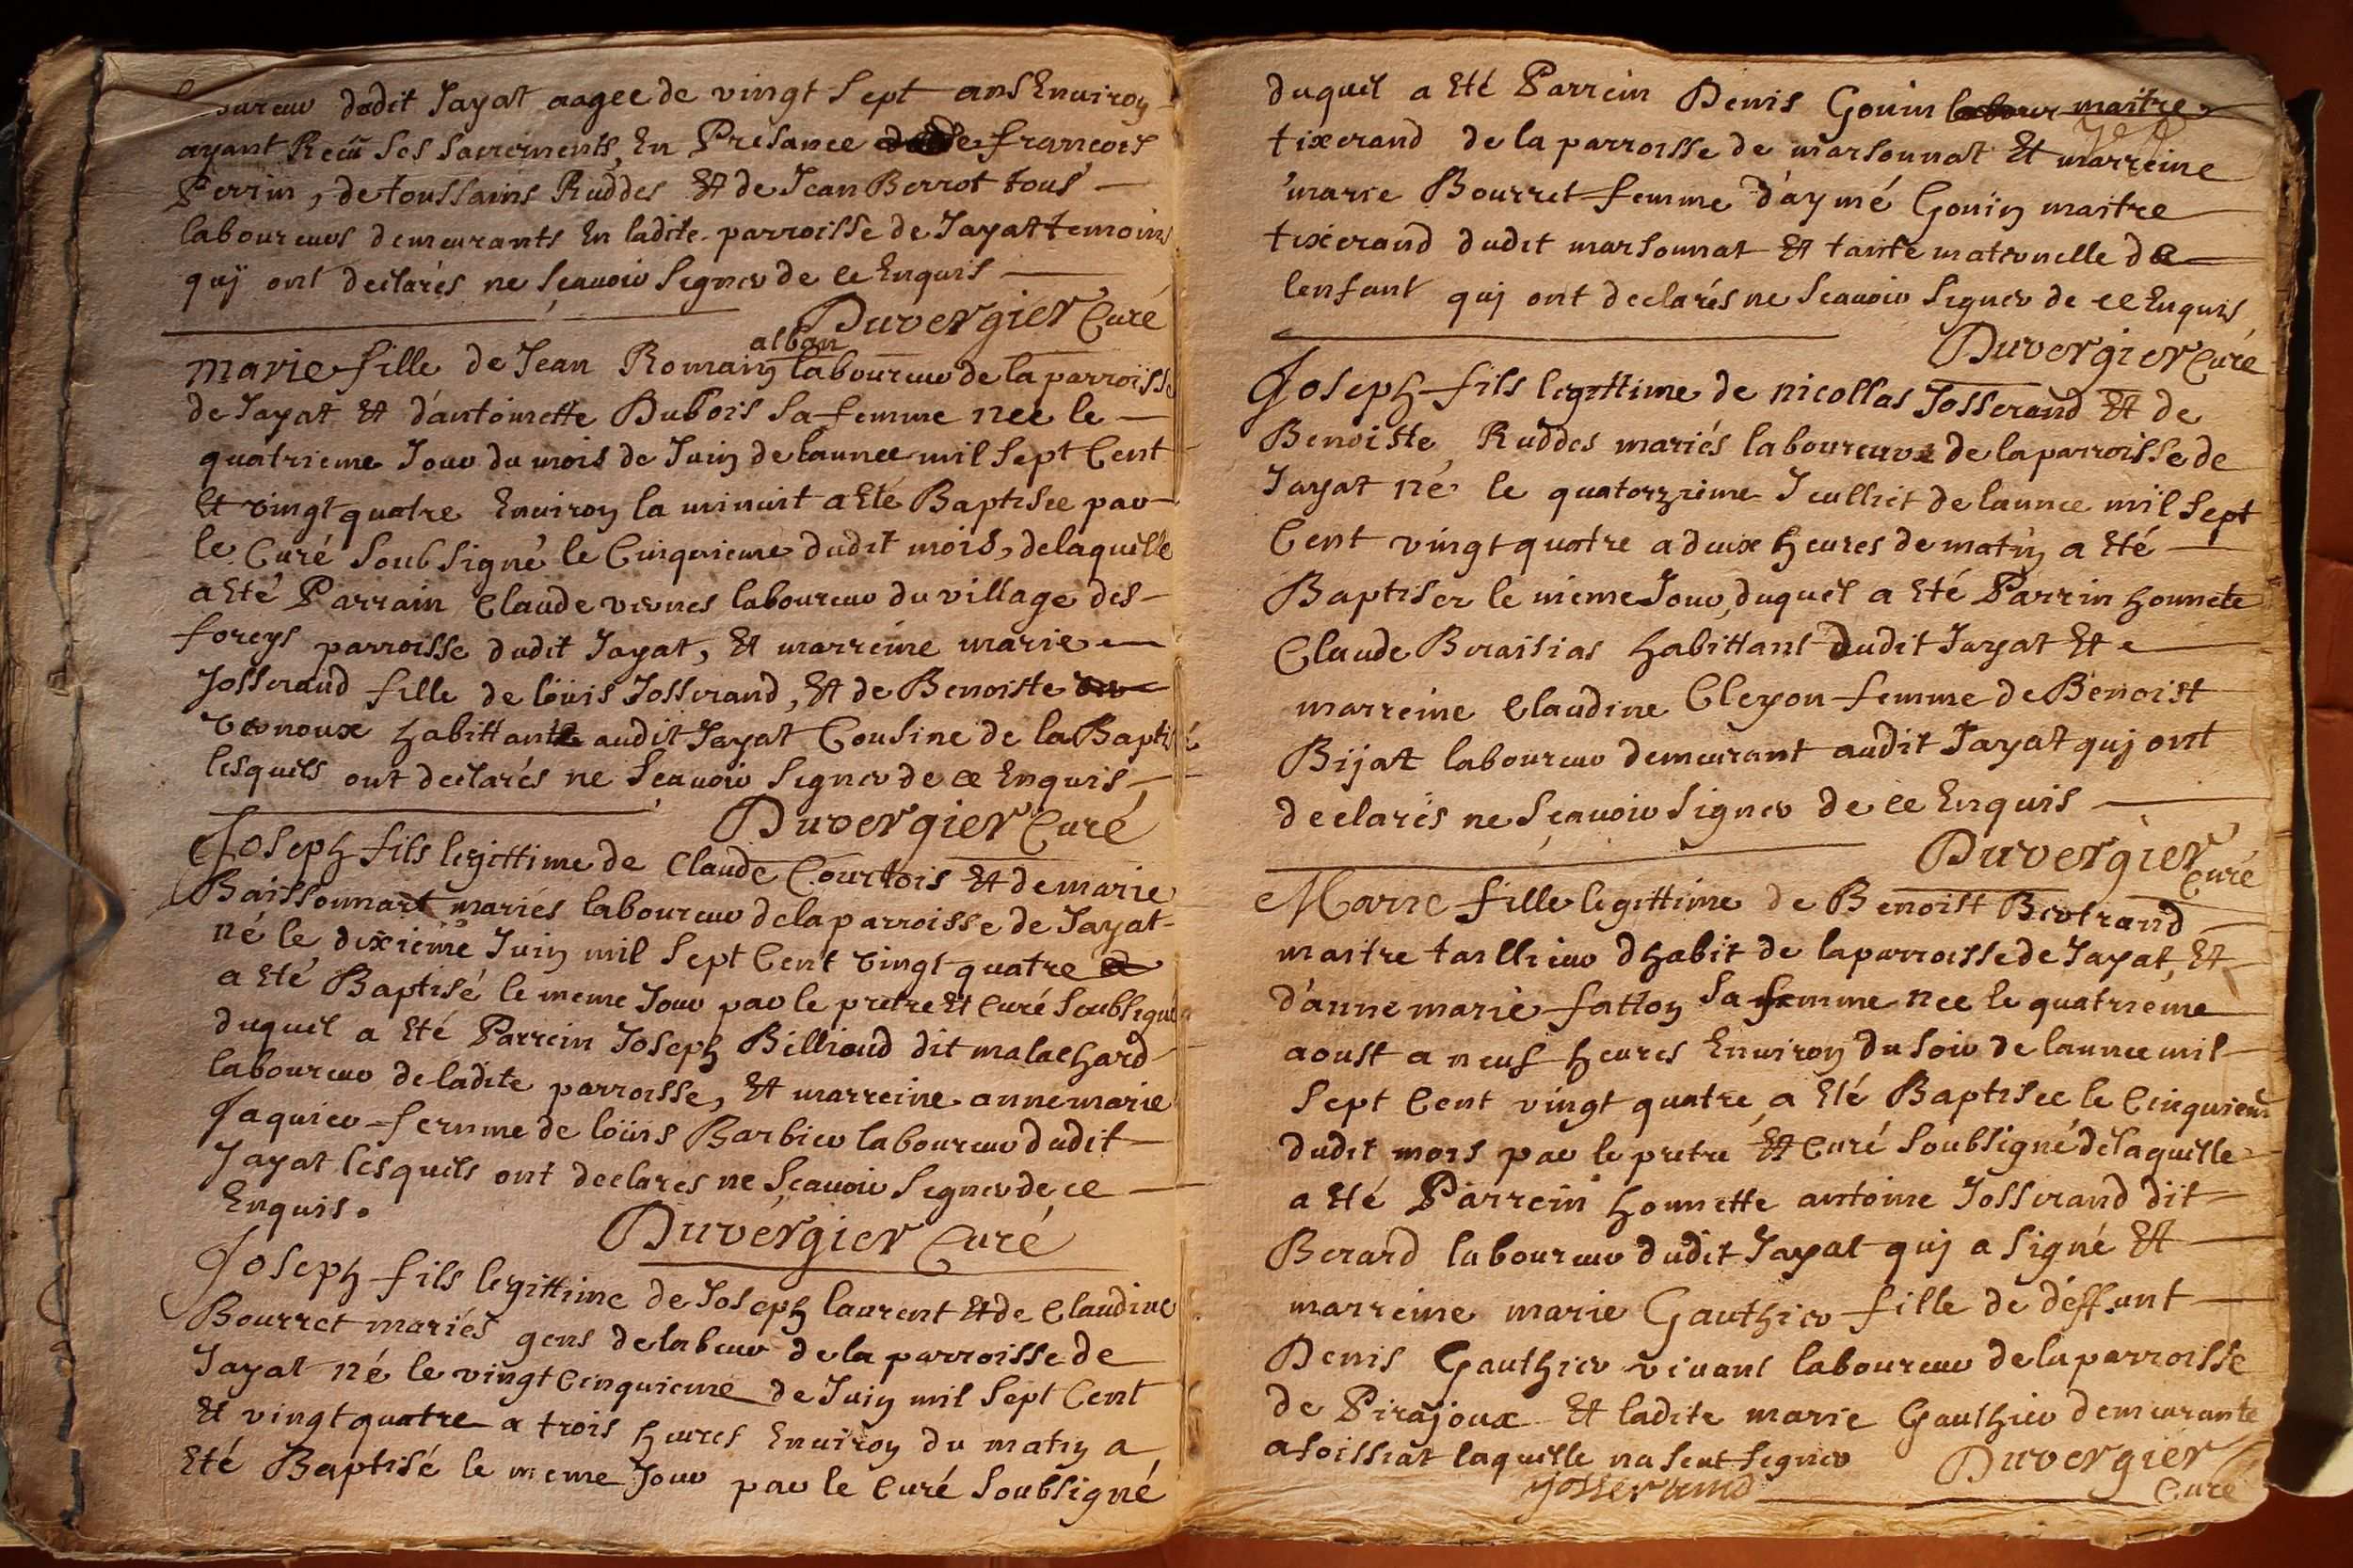 dudit Jayat aagee de vingt sept ans Enuiron
ayant Recû ses sacrements, En Presance de francois
Perrin, de toussains Ruddes Et de Jean Berrot tous
laboureurs demeurants En ladite parroisse de Jayat temoins
quj ont declarés ne sçauoir signer de ce Enquis
Duvergier Curé
alban
Marie fille de Jean Romain laboureur de la parroisse
de Jayat Et d'antoinette Dubois sa femme née le
quatrieme Jour du mois de Juin de lannee mil sept Cent
Et vingt quatre Enuiron la minuit a Eté Baptisée par
le Curé soubsigné le Cinquieme dudit mois, delaquelle
a Eté Parrain Claude vernes laboureur du village des
foreys parroisse dudit Jayat, Et marreine marie
Josserand fille de loüis Josserand, Et de Benoiste
vernoux habittante audit Jayat Cousine de la Baptisé
lesquels ont declarés ne sçauoir signer de ce Enquis
Duvergier Curé
Joseph fils legittime de Claude Courtois Et de marie
Baissonnart mariés laboureur de la parroisse de Jayat
né le dixieme Juin mil sept Cent vingt quatre
a Eté Baptisé le meme Jour par le pretre Et Curé soubsigné
duquel a Eté Parrein Joseph Billioud dit malachard
laboureur de ladite parroisse, Et marreine anne marie
Jaquier femme de loüis Barbier laboureur dudit
Jayat lesquels ont declares ne sçauoir signer de ce
Enquis.
Duvergier Curé
Joseph fils legittime de Joseph laurent Et de Claudine
Bourret mariés gens de labeur de la parroisse de
Jayat né le vingt Cinquieme de Juin mil sept Cent
Et vingt quatre a trois heures Enuiron du matin a
Eté Baptisé le meme Jour par le Curé soubsigné
duquel a Eté Parrein Denis Gouin labour maitre
tixerand de la parroisse de marsonnat Et marreine
marie Bourret femme d'aymé Gouin maitre
tixerand dudit marsonnat Et tante maternelle de
lenfant quj ont declarés ne sçauoir signer de ce Enquis
Duvergier Curé
Joseph fils legittime de nicollas Josserand Et de
Benoiste Ruddes mariés laboureurs de la parroisse de
Jayat né le quatorzieme Jeulliet de lannee mil sept
Cent vingt quatre a deux heures de matin a Eté
Baptiser le meme Jour, duquel a Eté Parrin honnete
Claude Braisias habittant dudit Jayat Et
marreine Claudine Cleyon femme de Benoist
Bijat laboureur demeurant audit Jayat quj ont
declarés ne sçauoir signer de ce Enquis
Duvergier Curé
Marie fille legittime de Benoist Bertrand
maitre taillieur dhabit de la parroisse de Jayat, Et
d'anne marie fatton sa femme née le quatrieme
aoust a neuf heures Enuiron du soir de lannee mil
sept Cent vingt quatre a Eté Baptisee le Cinquieme
dudit mois par le pretre Et Curé soubsigné delaquelle
a Eté Parrein honnette antoine Josserand dit
Berard laboureur dudit Jayat quj a signé Et
marreine marie Gauthier fille de deffunt
Denis Gauthier viuant laboureur de la parroisse
de Pirajoux Et ladite marie Gauthier demeurante
a foissiat laquelle na sceut signer
Duvergier Curé
Josserand